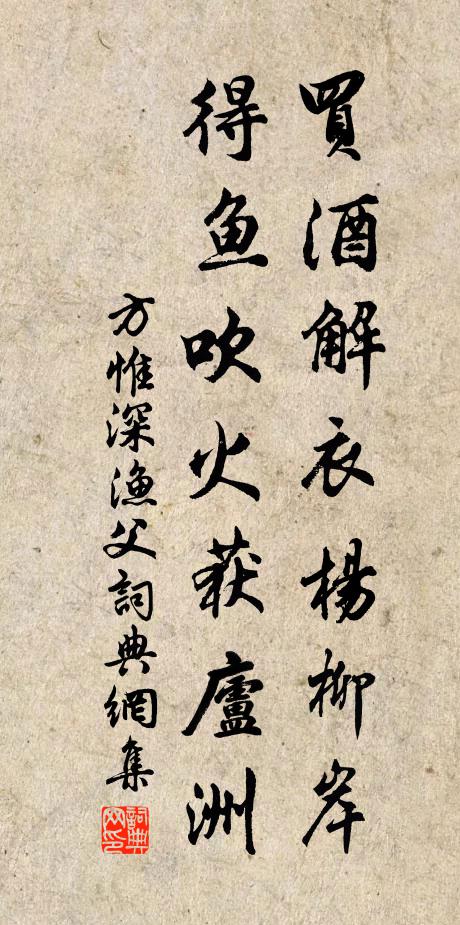 買酒解衣楊柳岸
得鱼吹火荻廬洲
方惟深渔父詞典網集
詞典网印